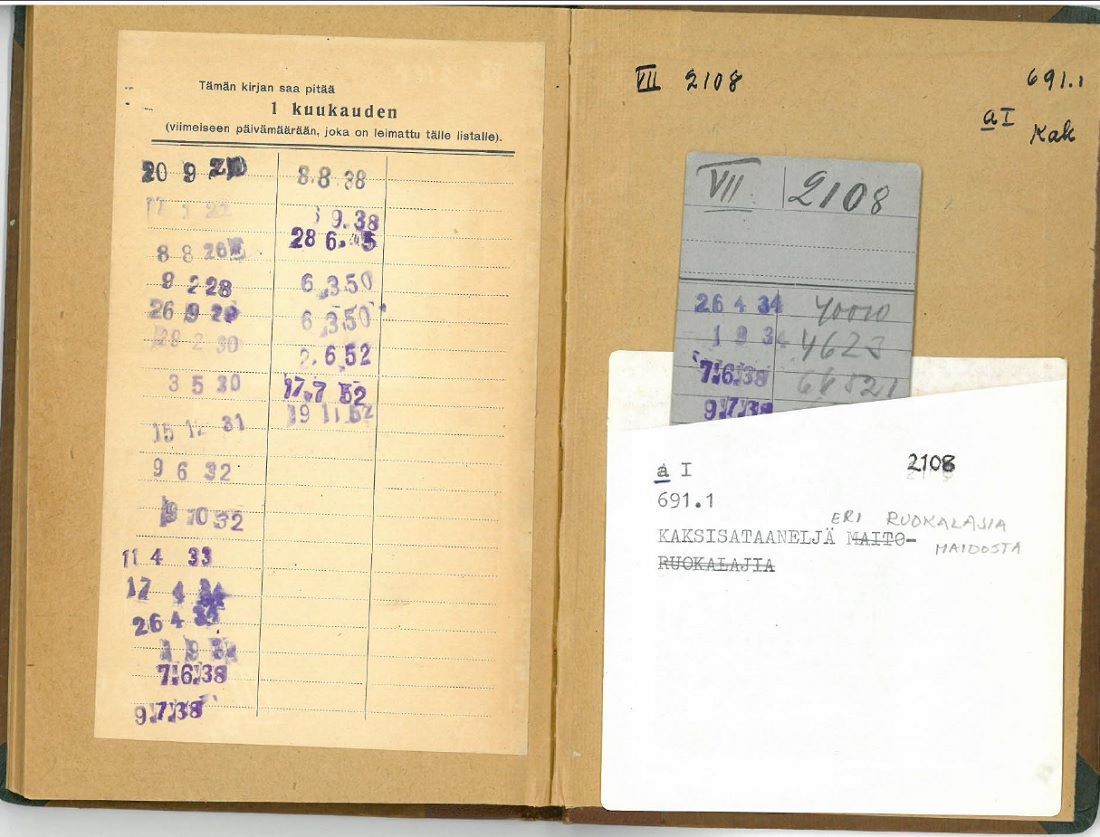 Tämän kirjan saa pitää
1 kuukauden
(viimeiseen päivämäärään, joka on leimattu tälle listalle).
20 9
8 8 26
9 2 28
26 9
28 2 30
3 5 30
15 31
9 6 32
9 10 32
11 4 33
17 4 34
26 4 34
1 9
7.6.38
9.7.38
8.8.38
9.38
28 6. 5
6 3 50
6 3 50
2.6.52
17.7 52
19 11 52
VII 2108
691.1
a I
Kak
VII 2108
26 4 34 40010
1 9 34 4623
7.6.38
9.7.38
a I 2108
691.1
ERI RUOKALAJIA
KAKSISATAANELJÄ MAITO- MAIDOSTA
RUOKALAJIA